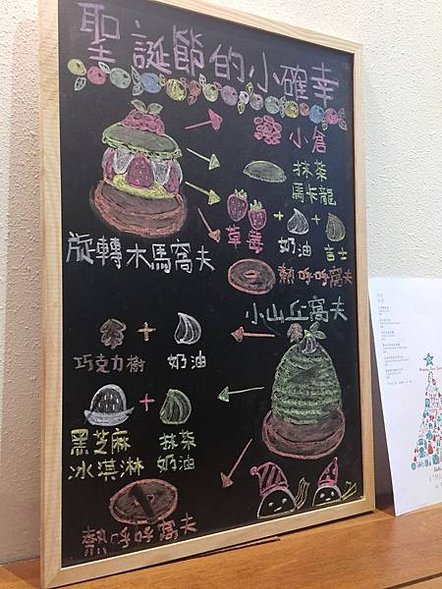 聖誕節的小確幸
小倉
抹茶
馬卡龍
草莓
+
奶油
+
吉士
旋轉木馬窩夫
熱呼呼窩夫
小山丘窩夫
巧克力樹
+
奶油
黑芝麻
冰淇淋
+
抹茶
奶油
熱呼呼窩夫